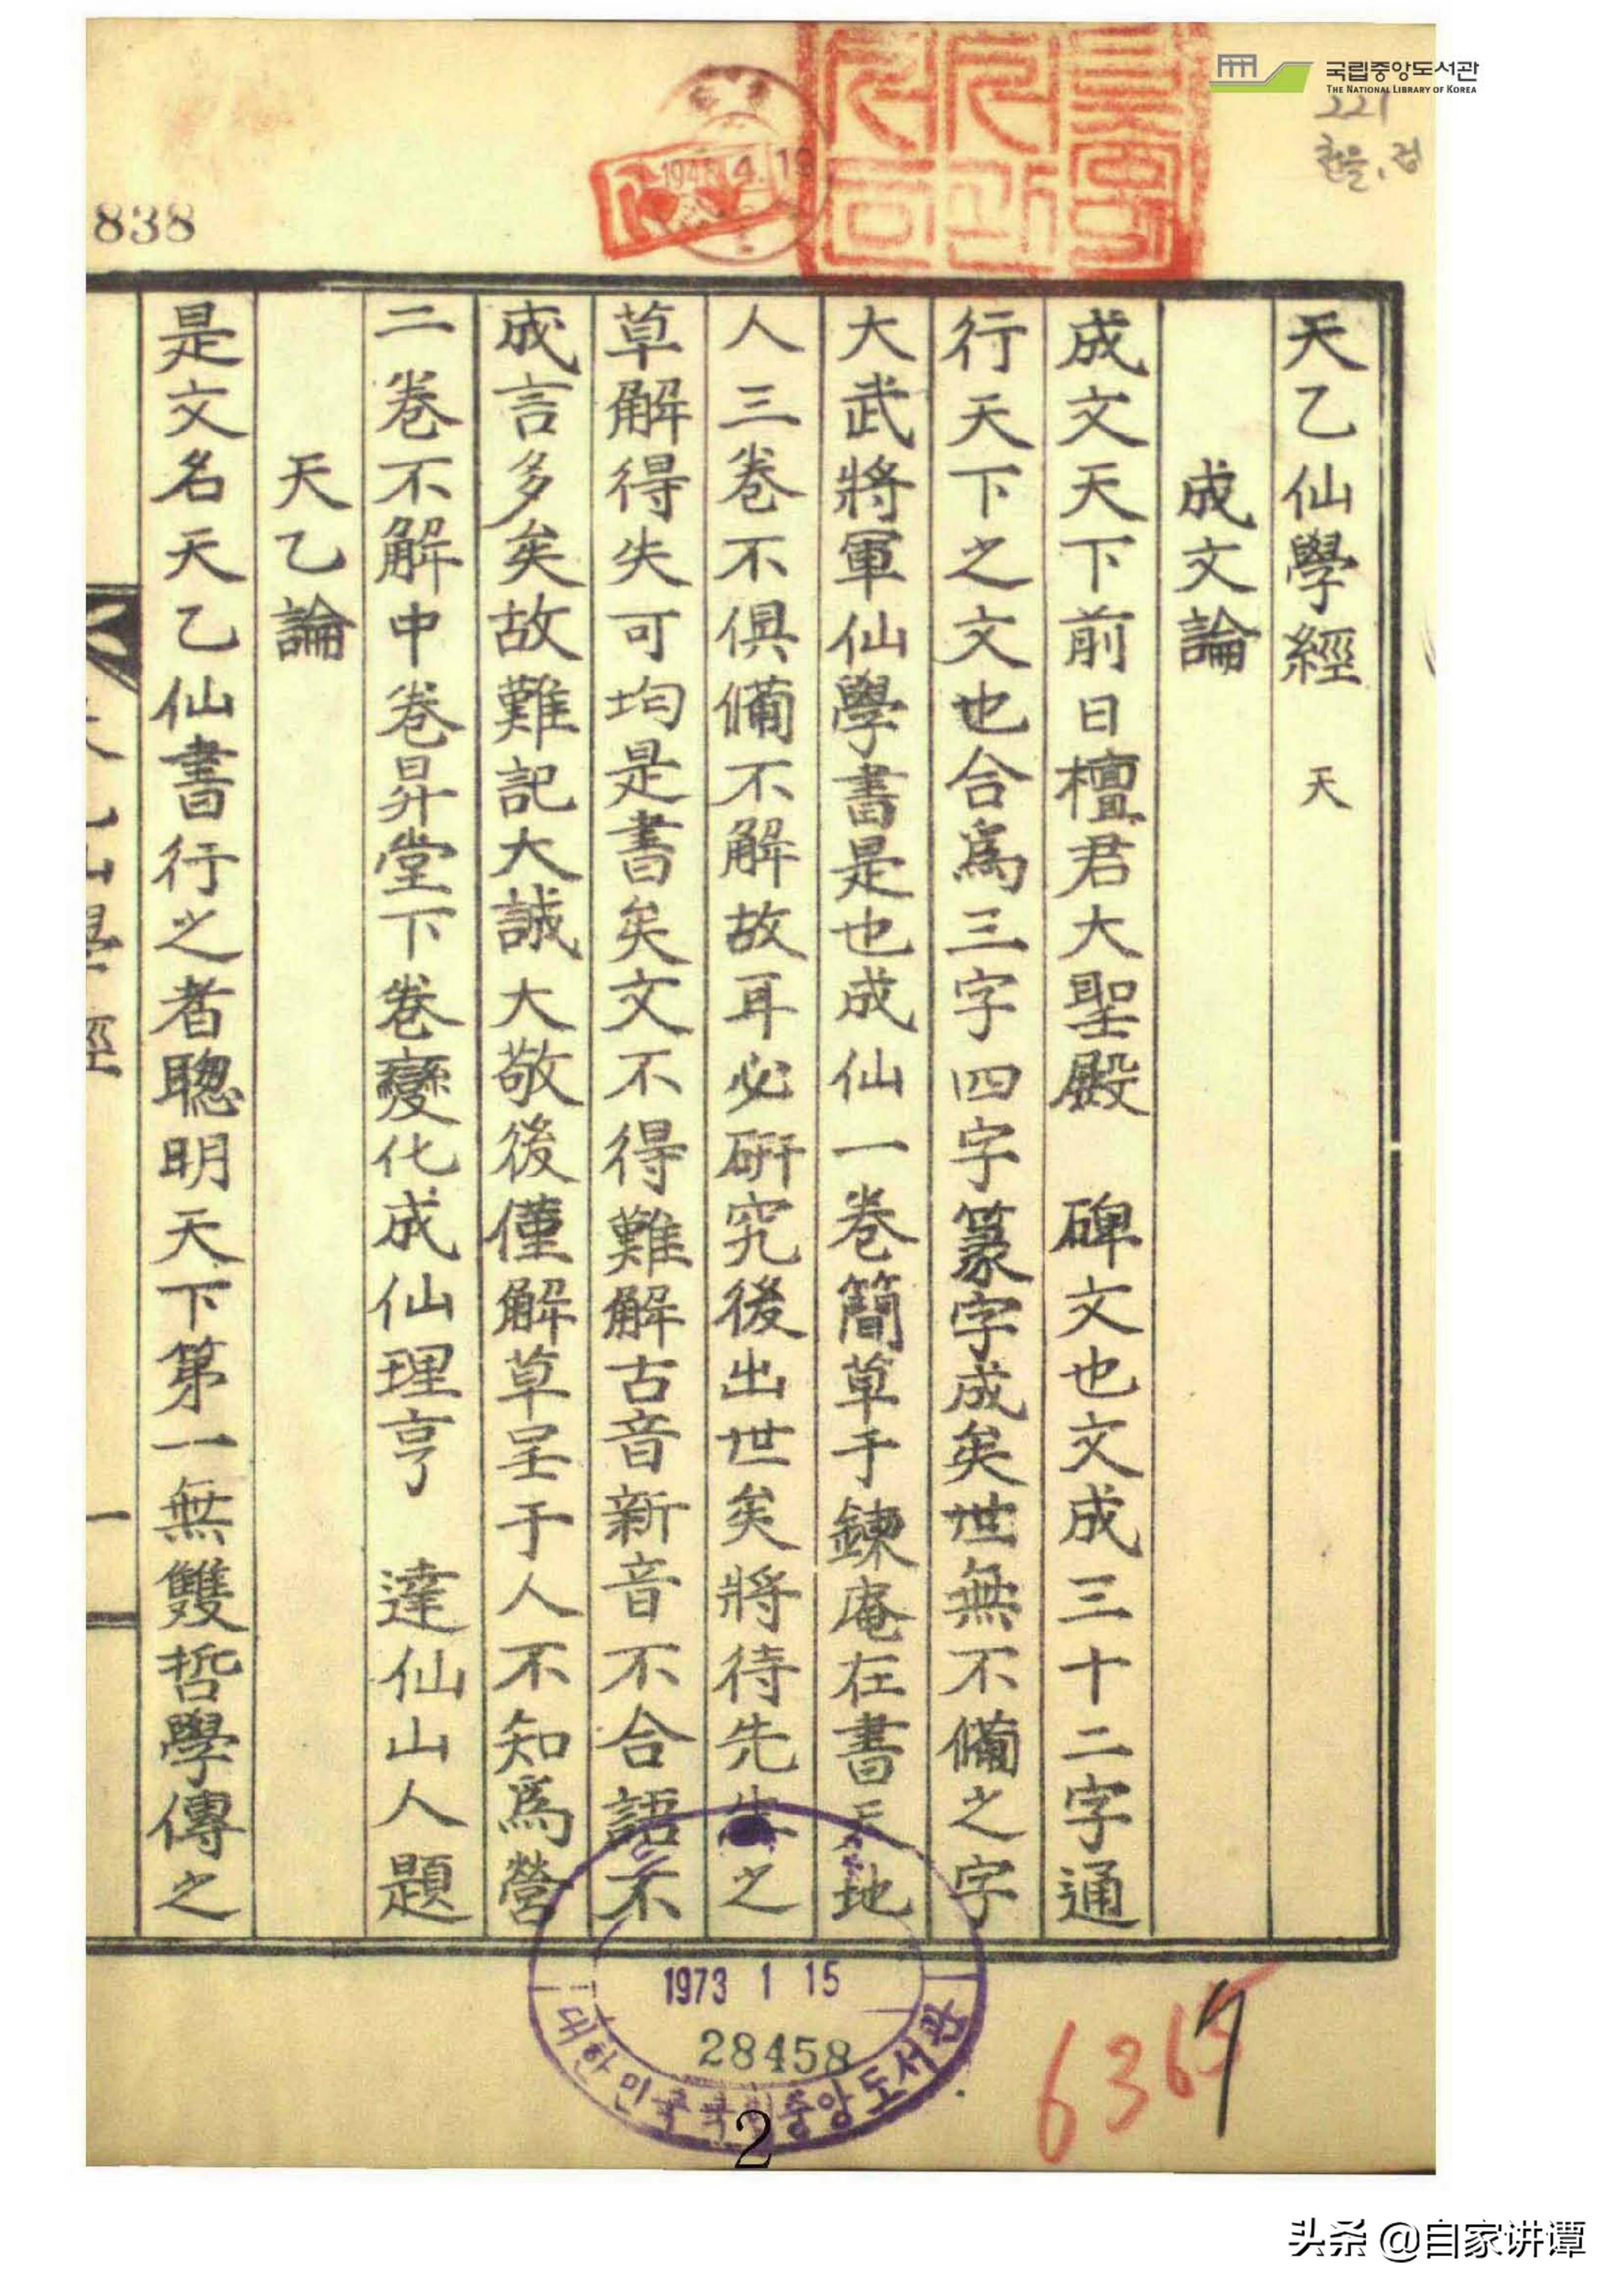 국립중앙도서관
THE NATIONAL LIBRARY OF KOREA
221
1948.4.19
838
天乙仙學經 天
成文論
成文天下前日檀君大聖殿 碑文也文成三十二字通
行天下之文也合爲三字四字篆字成矣世無不備之字
大武將軍仙學書是也成仙一卷簡草于鍊庵在書天地
人三卷不俱備不解故耳必硏究後出世矣將待先生之
草解得失可均是書矣文不得難解古音新音不合語不
成言多矣故難記大誠大敬後僅解草呈于人不知爲營
二卷不解中卷昇堂下卷變化成仙理亨 達仙山人題
天乙論
是文名天乙仙書行之者聰明天下第一無雙哲學傳之
一
1973 1 15
28458
대한민국국립중앙도서관
2
636
头条 @自家讲谭